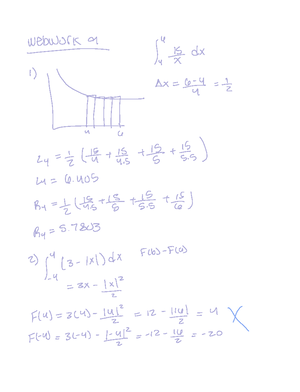 webwork 9
∫₄⁶ 15/x dx
1)
Δx = (6-4)/4 = 1/2
4 6
L₄ = 1/2 (15/4 + 15/4.5 + 15/5 + 15/5.5)
L4 = 6.405
R₄ = 1/2 (15/4.5 + 15/5 + 15/5.5 + 15/6)
R₄ = 5.7803
2) ∫₋₄⁴ (3 - |x|) dx F(b) - F(a)
= 3x - |x|²/2
F(4) = 3(4) - |4|²/2 = 12 - |16|/2 = 4
F(-4) = 3(-4) - |-4|²/2 = -12 - 16/2 = -20